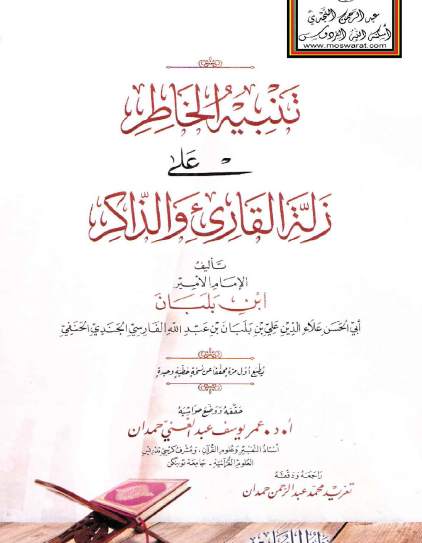 عبد الرحمن النجدي
أسكنه الله الفردوس
www.moswarat.com
تَنْبِيهُ الخَاطِرِ
عَلَى
زَلَّةِ القَارِئِ وَالذَّاكِرِ
تأليف
الإمام الأمير
ابن بلبان
أبي الحسن علاء الدين علي بن بلبان بن عبد الله الفارسي الجندي الحنفي
يطبع أول مرة محققا عن نسخة خطية وحيدة
حققه ووضع حواشيه
أ.د. عمر يوسف عبد الغني حمدان
أستاذ التفسير وعلوم القرآن، ومشرف كرسي تدريس
العلوم القرآنية - جامعة توبنكن
راجعه ودققه
تغريد محمد عبد الرحمن حمدان